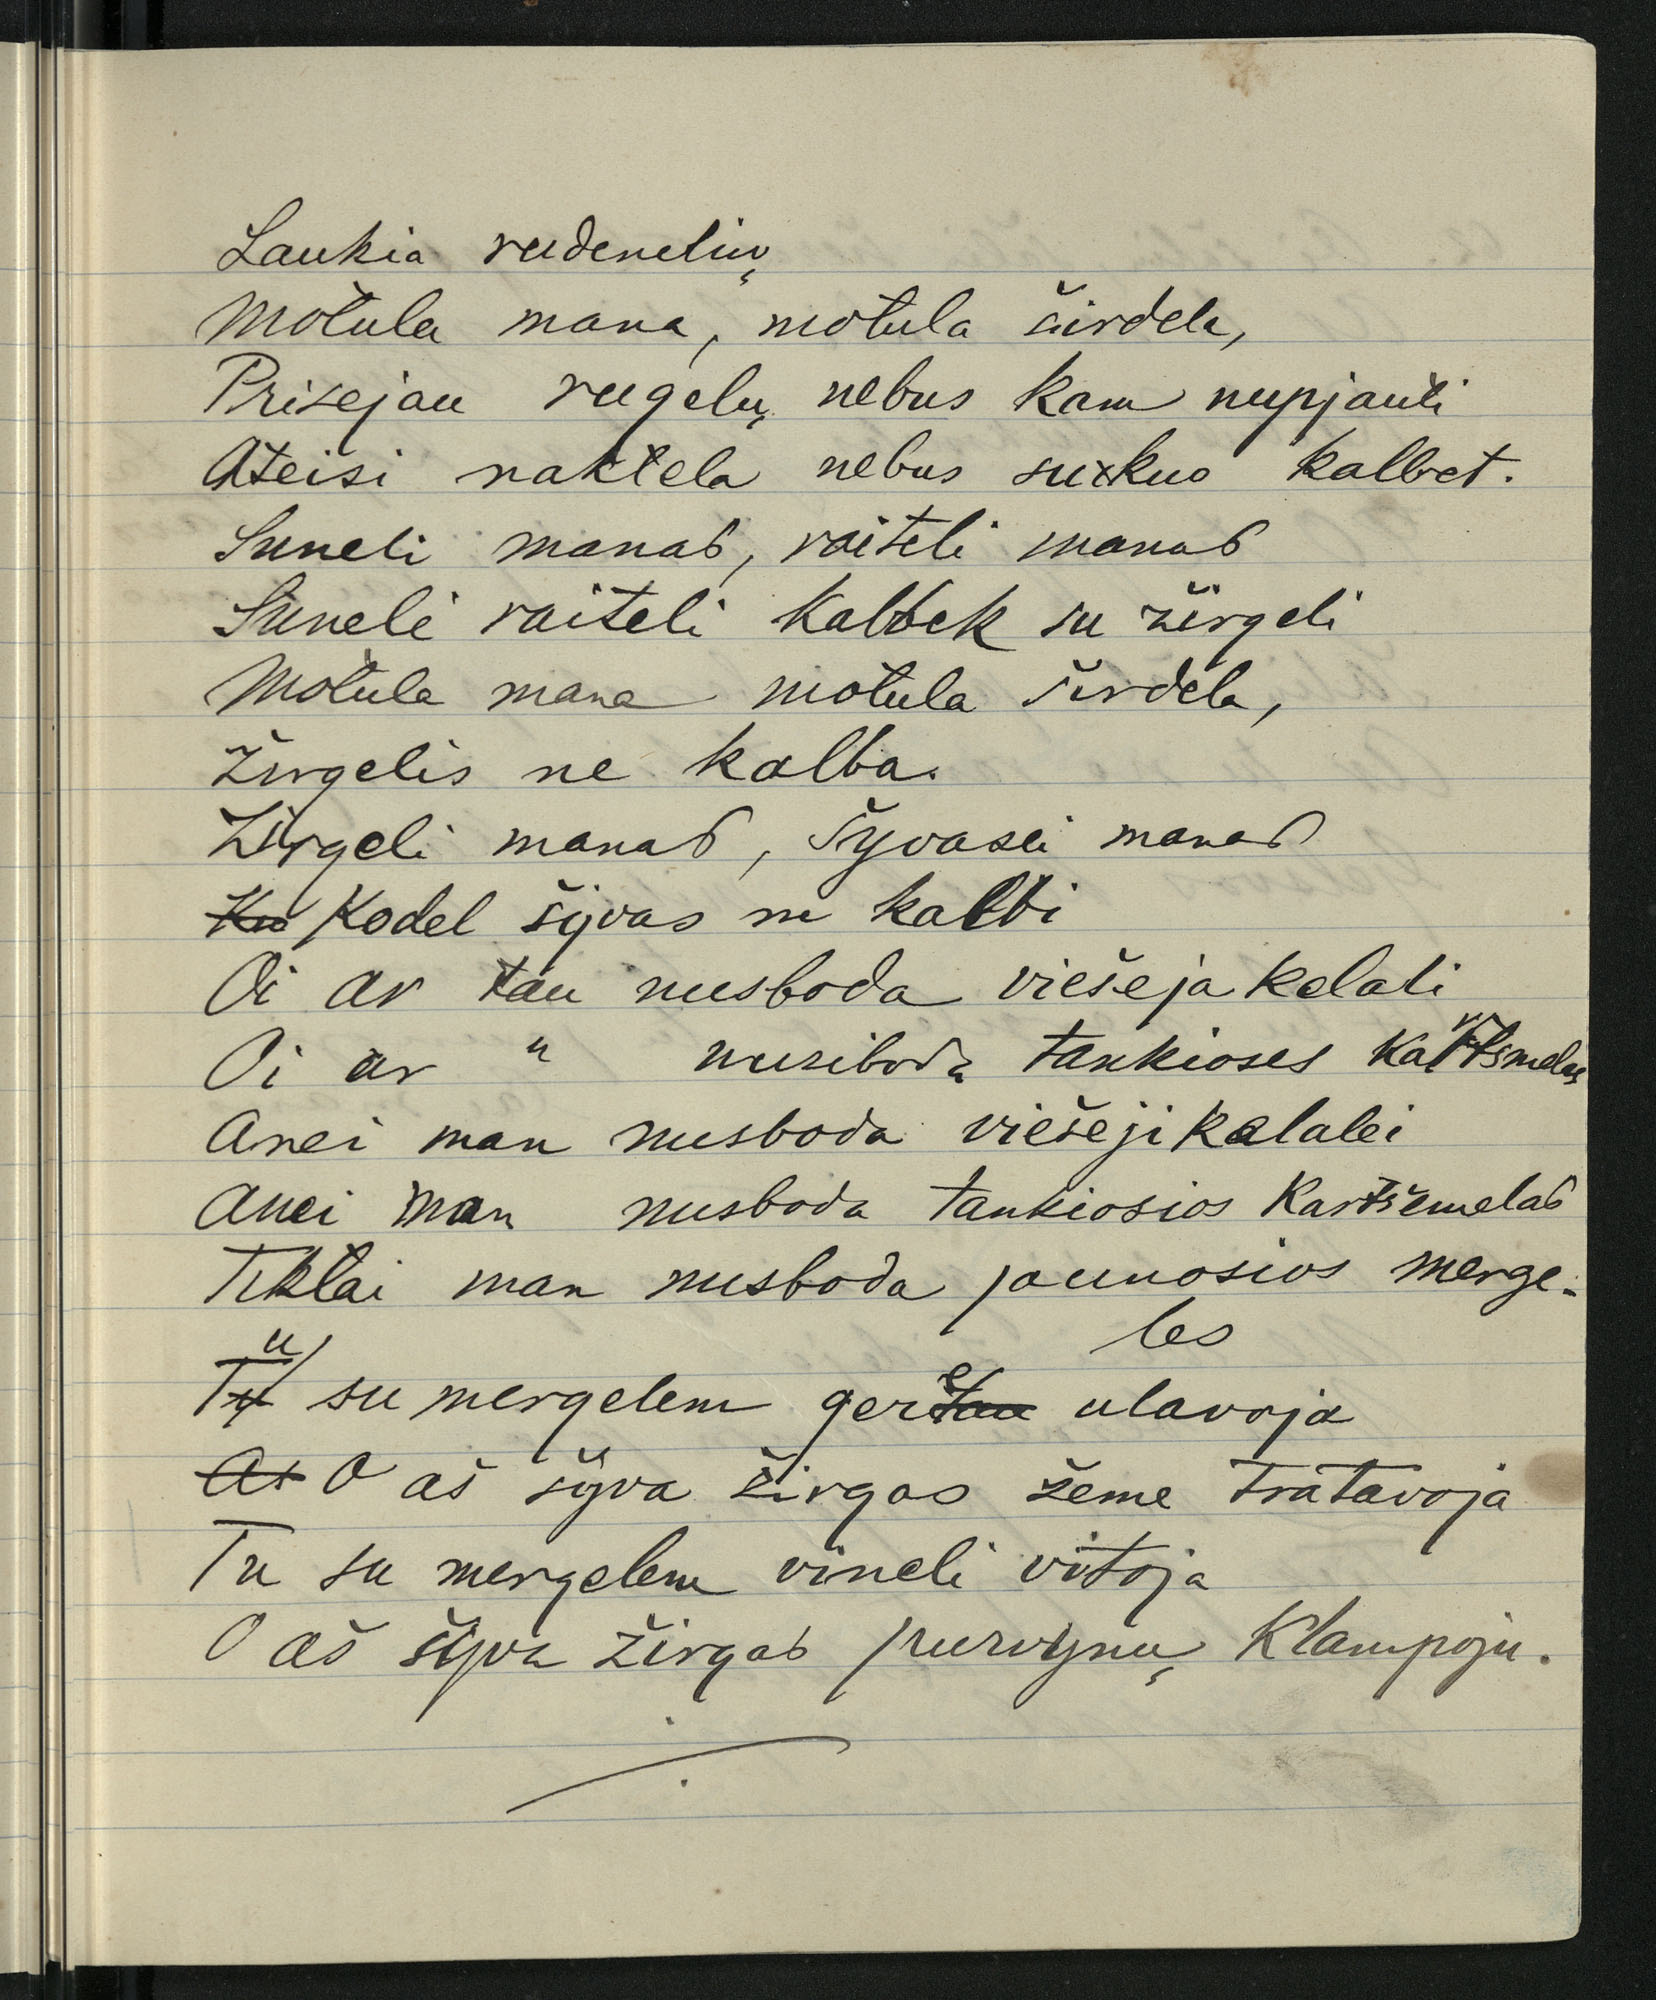 Laukia rudenelių
Močula mana, močula širdela,
Prisejau rugelų nebus kam nupjauti
Ateisi naktela nebus su kuo kalbet.
Suneli manas, raiteli manas
Suneli raiteli kalbek su žirgeli
Močula mana močula širdela,
Žirgelis ne kalba.
Žirgeli manas, šyvasei manas
Kodel šyvas ne kalbi
Oi ar tau nusboda viešeja kelali
Oi ar " nusiboda tankioses
Anei man nusboda viešeji kelalei
Anei man nusboda tankiosios Kartšemelas
Tiktai man nusboda jaunosios merge-
les
Tu su mergelem gerei ulavoja
O aš šyva žirgas žeme tratavoja
Tu su mergelem vineli vitoja
O aš šyva žirgas purvynų Klampoju.